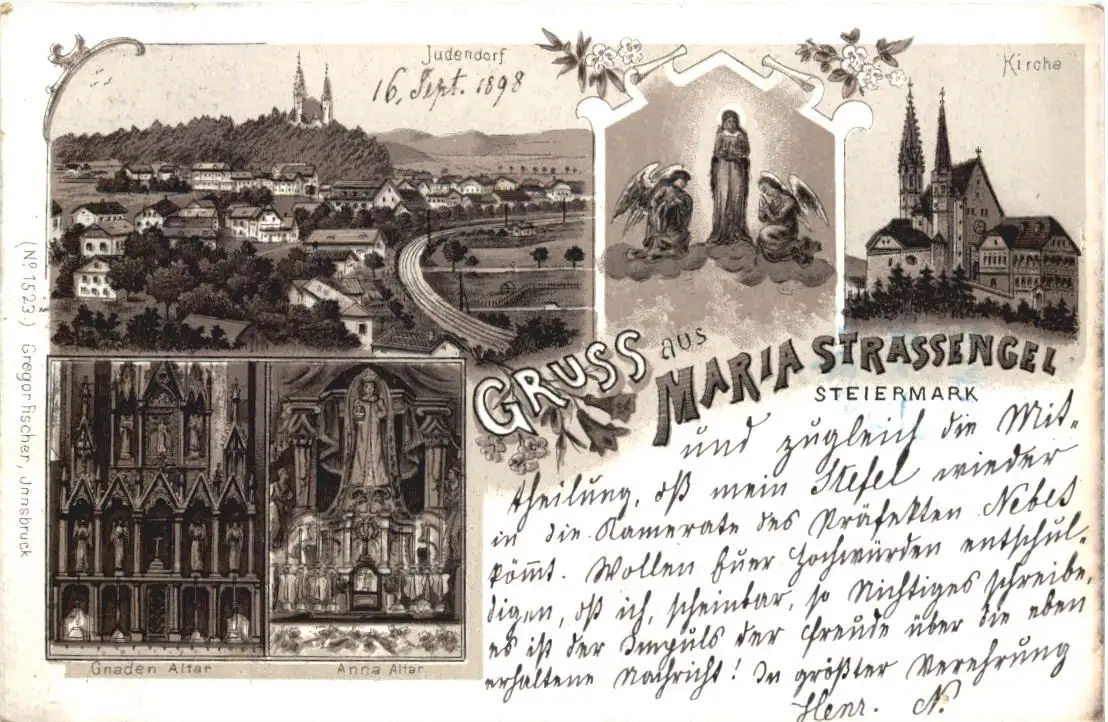 Judendorf
16. Sept. 1898
Kirche
GRUSS aus
MARIA STRASSENGEL
STEIERMARK
(No 1523.) Gregor Fischer, Innsbruck
Gnaden Altar
Anna Altar
und zugleich die Mit-
theilung, dß mein Stefel wieder
in die Kamerate des Präfekten Nebel
kömmt. Wollen Euer Hochwürden entschul-
digen, dß ich, scheinbar, so Nichtiges schreibe,
es ist der Impuls der Freude über die eben
erhaltene Nachricht! In größter Verehrung
Henr. N.